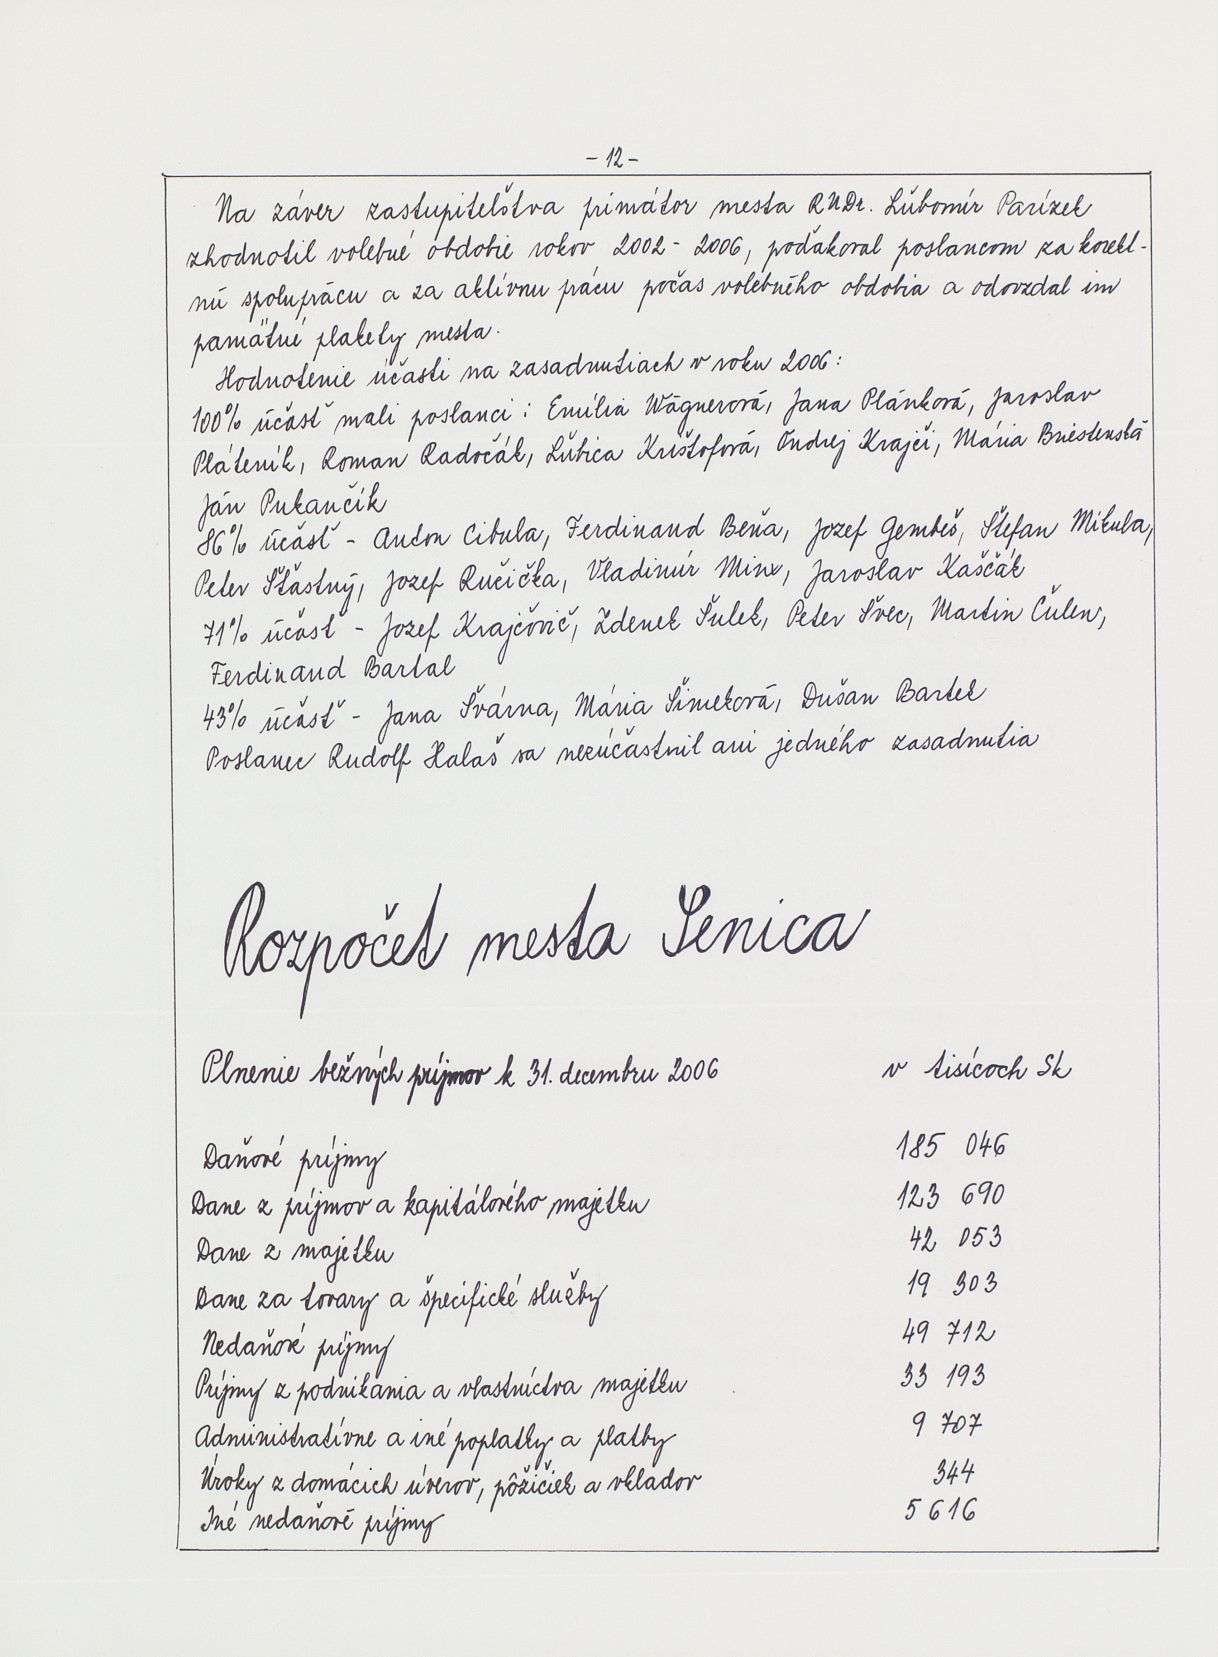 - 12 -
Na záver zastupiteľstva primátor mesta RNDr. Ľubomír Parízek
zhodnotil volebné obdobie rokov 2002 - 2006, poďakoval poslancom za korekt-
nú spoluprácu a za aktívnu prácu počas volebného obdobia a odovzdal im
pamätné plakety mesta.
Hodnotenie účasti na zasadnutiach v roku 2006:
100% účasť mali poslanci: Emília Wágnerová, Jana Plánková, Jaroslav
Pláteník, Roman Radočák, Ľubica Krištofová, Ondrej Krajči, Mária Briestenská
Ján Pukančík
86% účasť - Anton Cibula, Ferdinand Beňa, Jozef Gembeš, Štefan Mikula,
Peter Šťastný, Jozef Ručička, Vladimír Minx, Jaroslav Kaščák
71% účasť - Jozef Krajčovič, Zdenek Šulek, Peter Švec, Martin Čulen,
Ferdinand Bartal
43% účasť - Jana Švárna, Mária Šimeková, Dušan Bartek
Poslanec Rudolf Halaš sa nezúčastnil ani jedného zasadnutia
Rozpočet mesta Senica
Plnenie bežných príjmov k 31. decembru 2006 v tisícoch Sk
Daňové príjmy 185 046
Dane z príjmov a kapitálového majetku 123 690
Dane z majetku 42 053
Dane za tovary a špecifické služby 19 303
Nedaňové príjmy 49 712
Príjmy z podnikania a vlastníctva majetku 33 193
Administratívne a iné poplatky a platby 9 707
Úroky z domácich úverov, pôžičiek a vkladov 344
Iné nedaňové príjmy 5 616